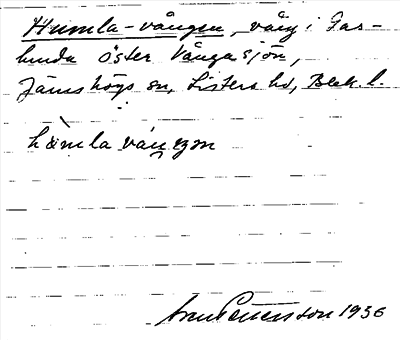 Humla-vången, vång i Gas-
lunda öster Vångasjön,
Jämshögs sn, Listers hd, Blek. l.
hòmla váŋŋən
Pettersson 1936